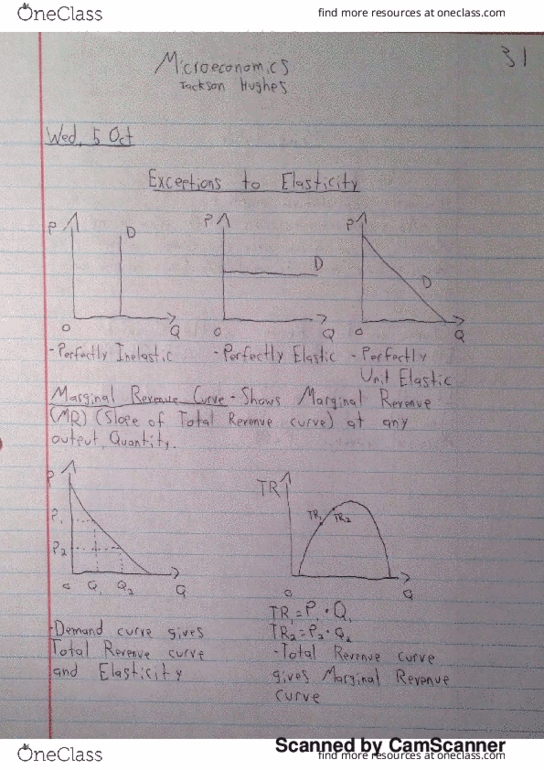 OneClass
find more resources at oneclass.com
31
Microeconomics
Jackson Hughes
Wed, 5 Oct
Exceptions to Elasticity
P D O Q
P D O Q
P D O Q
-Perfectly Inelastic
-Perfectly Elastic
-Perfectly
Unit Elastic
Marginal Revenue Curve - Shows Marginal Revenue
(MR) (Slope of Total Revenue curve) at any
output Quantity.
P
P1
P2
O Q1 Q2 Q
TR
TR1 TR2
O Q
-Demand curve gives
Total Revenue curve
and Elasticity
TR1=P1·Q1
TR2=P2·Q2
-Total Revenue curve
gives Marginal Revenue
curve
Scanned by CamScanner
OneClass
find more resources at oneclass.com